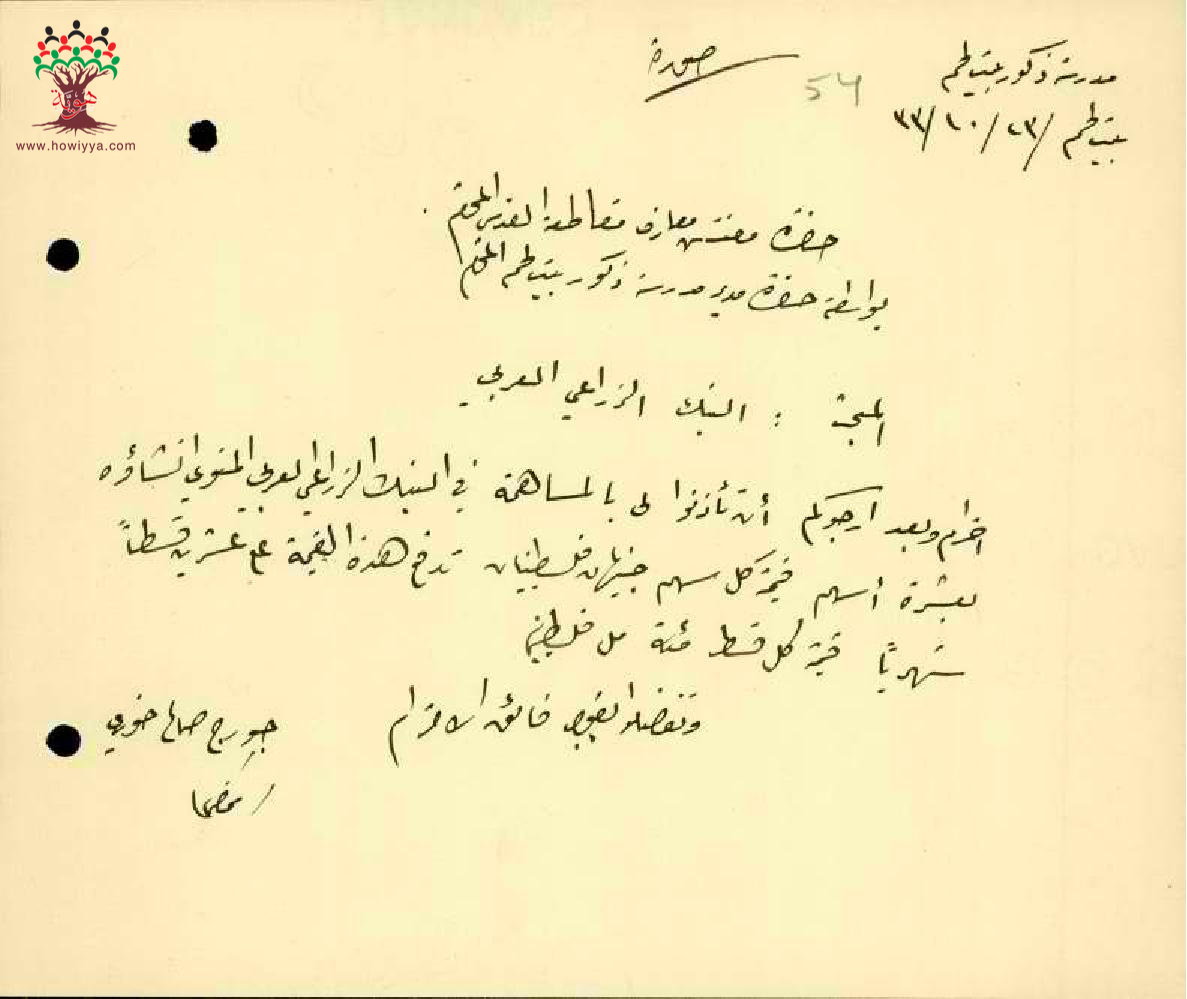 هوية
www.howiyya.com
صورة
54
مدرسة ذكور بيت لحم
بيت لحم ٢٣/١٠/٣٣
حضرة مفتش معارف مقاطعة القدس المحترم .
بواسطة حضرة مدير مدرسة ذكور بيت لحم المحترم
المبحث : البنك الزراعي العربي
احترام وبعد ارجوكم أن تأذنوا لي بالمساهمة في البنك الزراعي العربي المنوي انشاؤه
بعشرة أسهم قيمة كل سهم جنيهان فلسطينيان تدفع هذه القيمة على عشرين قسطاً
شهرياً قيمة كل قسط مئة مل فلسطيني
وتفضلوا بقبول فائق الاحترام
جورج صالح خوري